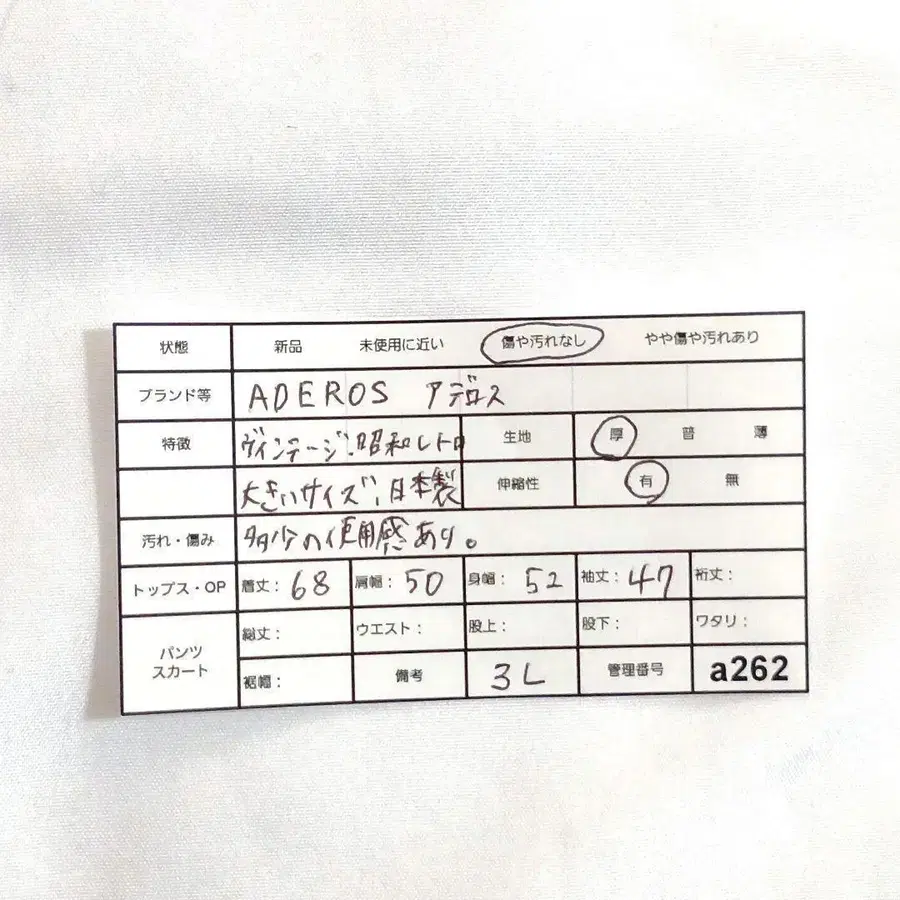 状態 新品 未使用に近い 傷や汚れなし やや傷や汚れあり
ブランド等 ADEROS アデロス
特徴 ヴィンテージ、昭和レトロ 生地 厚 普 薄
大きいサイズ、日本製 伸縮性 有 無
汚れ・傷み 多少の使用感あり。
トップス・OP 着丈： 68 肩幅： 50 身幅： 52 袖丈： 47 裄丈：
パンツ スカート 総丈： ウエスト： 股上： 股下： ワタリ：
裾幅： 備考 3L 管理番号 a262